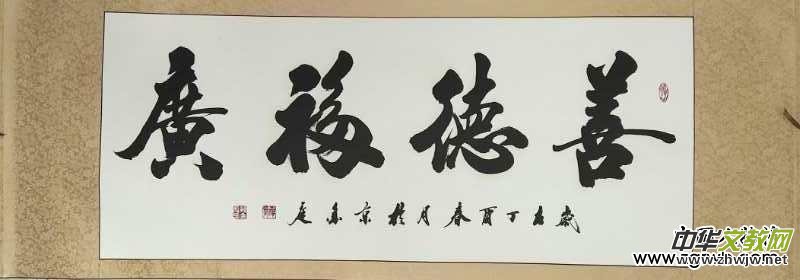 善德福廣
歲在丁酉春月於京
中华文教网
www.wgwzhwjw.net